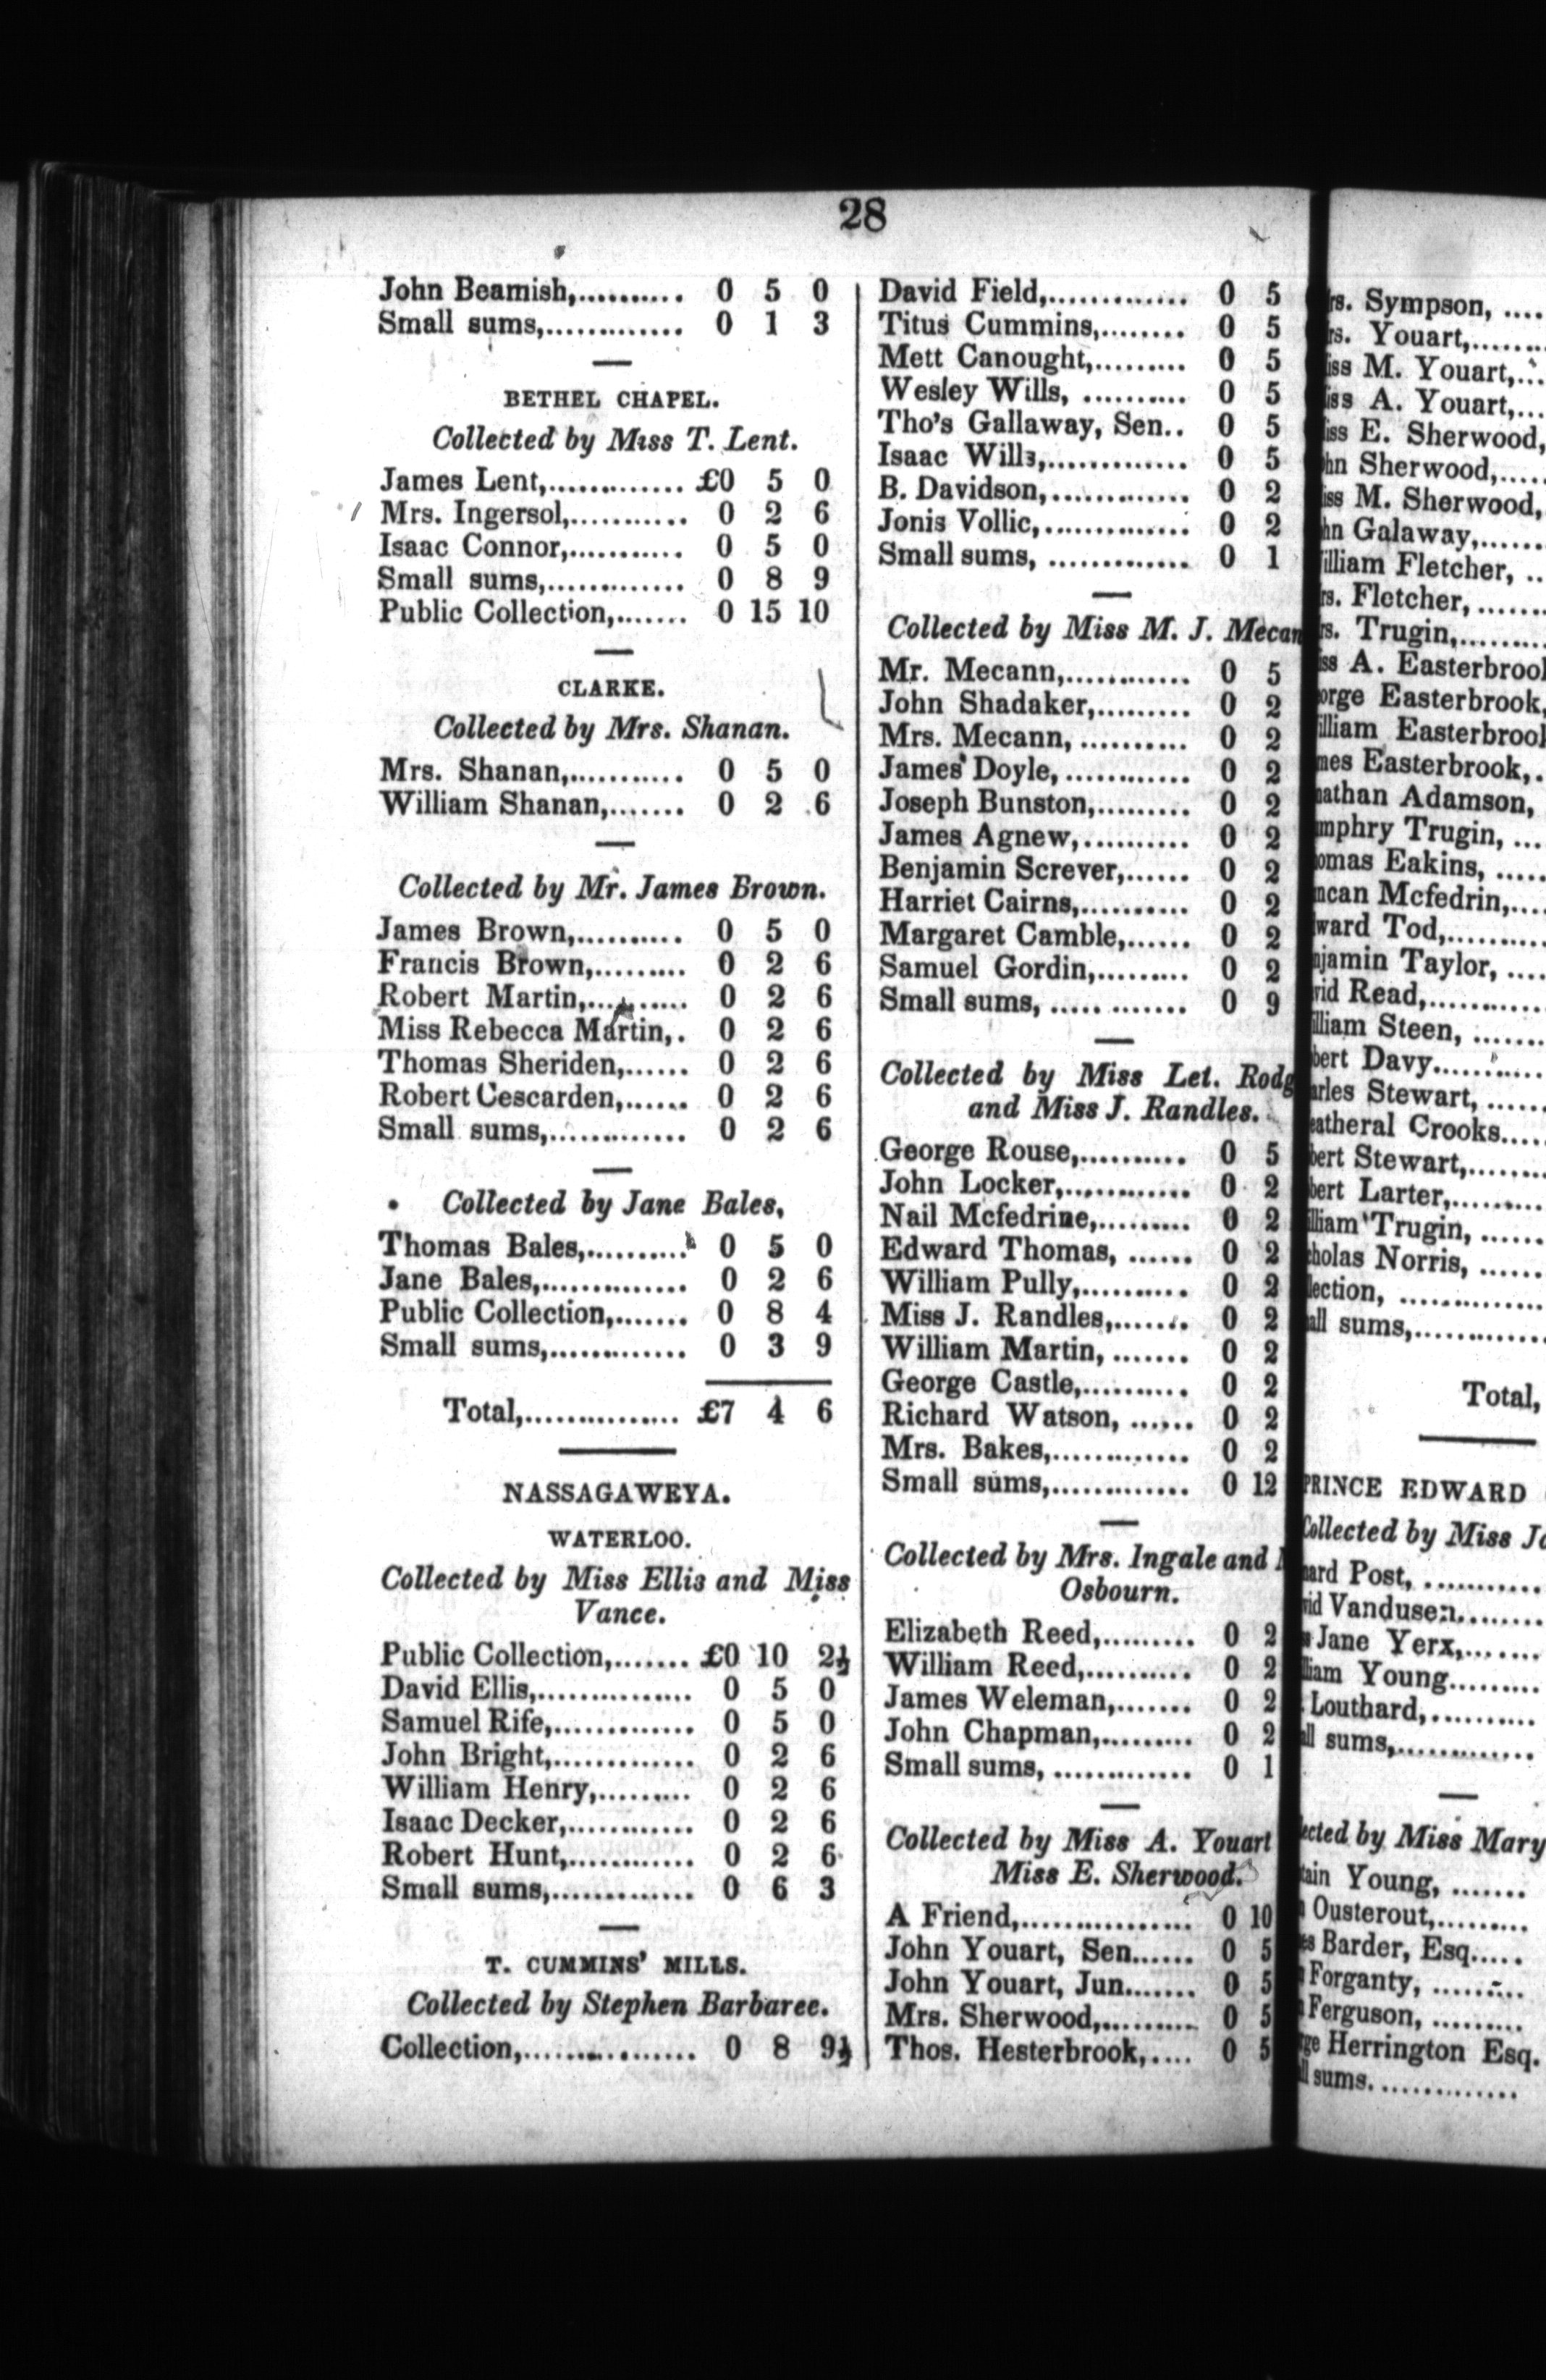 28
John Beamish,.......... 0 5 0
Small sums,............. 0 1 3
BETHEL CHAPEL.
Collected by Miss T. Lent.
James Lent,............. £0 5 0
Mrs. Ingersol,........... 0 2 6
Isaac Connor,........... 0 5 0
Small sums,............. 0 8 9
Public Collection,....... 0 15 10
CLARKE.
Collected by Mrs. Shanan.
Mrs. Shanan,........... 0 5 0
William Shanan,....... 0 2 6
Collected by Mr. James Brown.
James Brown,.......... 0 5 0
Francis Brown,......... 0 2 6
Robert Martin,.......... 0 2 6
Miss Rebecca Martin,. 0 2 6
Thomas Sheriden,...... 0 2 6
Robert Cescarden,...... 0 2 6
Small sums,............. 0 2 6
Collected by Jane Bales,
Thomas Bales,.......... 0 5 0
Jane Bales,.............. 0 2 6
Public Collection,....... 0 8 4
Small sums,............. 0 3 9
Total,............... £7 4 6
NASSAGAWEYA.
WATERLOO.
Collected by Miss Ellis and Miss
Vance.
Public Collection,....... £0 10 2½
David Ellis,............... 0 5 0
Samuel Rife,............. 0 5 0
John Bright,............. 0 2 6
William Henry,......... 0 2 6
Isaac Decker,............ 0 2 6
Robert Hunt,............ 0 2 6
Small sums,............. 0 6 3
T. CUMMINS' MILLS.
Collected by Stephen Barbaree.
Collection,................ 0 8 9½
David Field,............. 0 5
Titus Cummins,........ 0 5
Mett Canought,......... 0 5
Wesley Wills, .......... 0 5
Tho's Gallaway, Sen.. 0 5
Isaac Wills,............. 0 5
B. Davidson,............. 0 2
Jonis Vollic,.............. 0 2
Small sums, ............. 0 1
Collected by Miss M. J. Mecan
Mr. Mecann,............ 0 5
John Shadaker,......... 0 2
Mrs. Mecann, .......... 0 2
James Doyle,............ 0 2
Joseph Bunston,......... 0 2
James Agnew,.......... 0 2
Benjamin Screver,...... 0 2
Harriet Cairns,.......... 0 2
Margaret Camble,...... 0 2
Samuel Gordin,......... 0 2
Small sums, ............. 0 9
Collected by Miss Let. Rodg
and Miss J. Randles.
George Rouse,.......... 0 5
John Locker,............ 0 2
Nail Mcfedrine,......... 0 2
Edward Thomas, ...... 0 2
William Pully,.......... 0 2
Miss J. Randles,....... 0 2
William Martin, ....... 0 2
George Castle,.......... 0 2
Richard Watson, ...... 0 2
Mrs. Bakes,............. 0 2
Small sums,............. 0 12
Collected by Mrs. Ingale and
Osbourn.
Elizabeth Reed,......... 0 2
William Reed,.......... 0 2
James Weleman,....... 0 2
John Chapman,......... 0 2
Small sums, ............. 0 1
Collected by Miss A. Youart
Miss E. Sherwood.
A Friend,................ 0 10
John Youart, Sen...... 0 5
John Youart, Jun....... 0 5
Mrs. Sherwood,......... 0 5
Thos. Hesterbrook,.... 0 5
rs. Sympson, ....
rs. Youart,.......
iss M. Youart,...
iss A. Youart,...
iss E. Sherwood,
hn Sherwood,.....
iss M. Sherwood,
hn Galaway,......
illiam Fletcher, ..
rs. Fletcher, .......
rs. Trugin,.........
ss A. Easterbrook
orge Easterbrook,
illiam Easterbrook
mes Easterbrook,.
nathan Adamson,
mphry Trugin, ...
omas Eakins, .....
ncan Mcfedrin,....
ward Tod,..........
njamin Taylor, ....
vid Read,...........
illiam Steen, .......
bert Davy...........
arles Stewart, ......
eatheral Crooks....
bert Stewart,........
bert Larter,.........
lliam Trugin, ......
cholas Norris, ......
lection, ..............
all sums,.............
Total,
PRINCE EDWARD
Collected by Miss Jo
ard Post, ...........
vid Vandusen........
Jane Yerx,.......
liam Young.........
Louthard,..........
all sums,.............
ected by Miss Mary
tain Young, .......
Ousterout,.........
Barder, Esq.....
Forganty, ........
Ferguson, .........
ge Herrington Esq.
ll sums..............